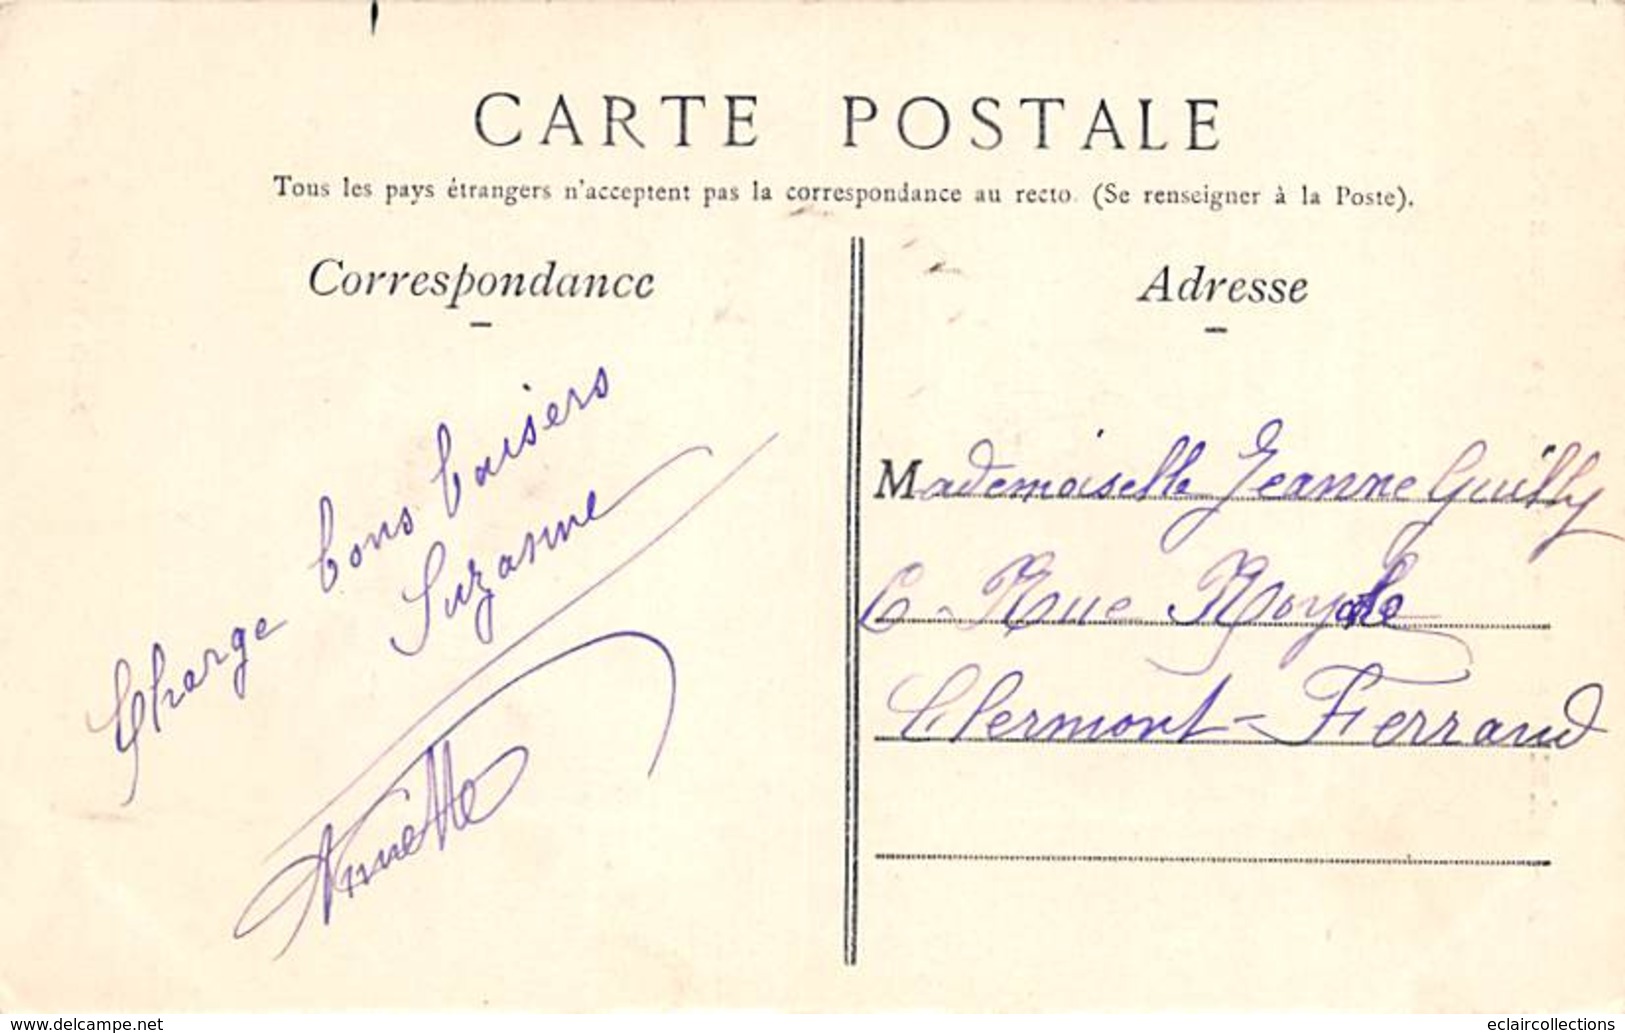 CARTE POSTALE
Tous les pays étrangers n'acceptent pas la correspondance au recto. (Se renseigner à la Poste).
Correspondance
bons baisers
Suzanne
Annette
Adresse
Mademoiselle Jeanne Guilly
Rue Royale
Clermont-Ferrand
www.delcampe.net
eclaircollections